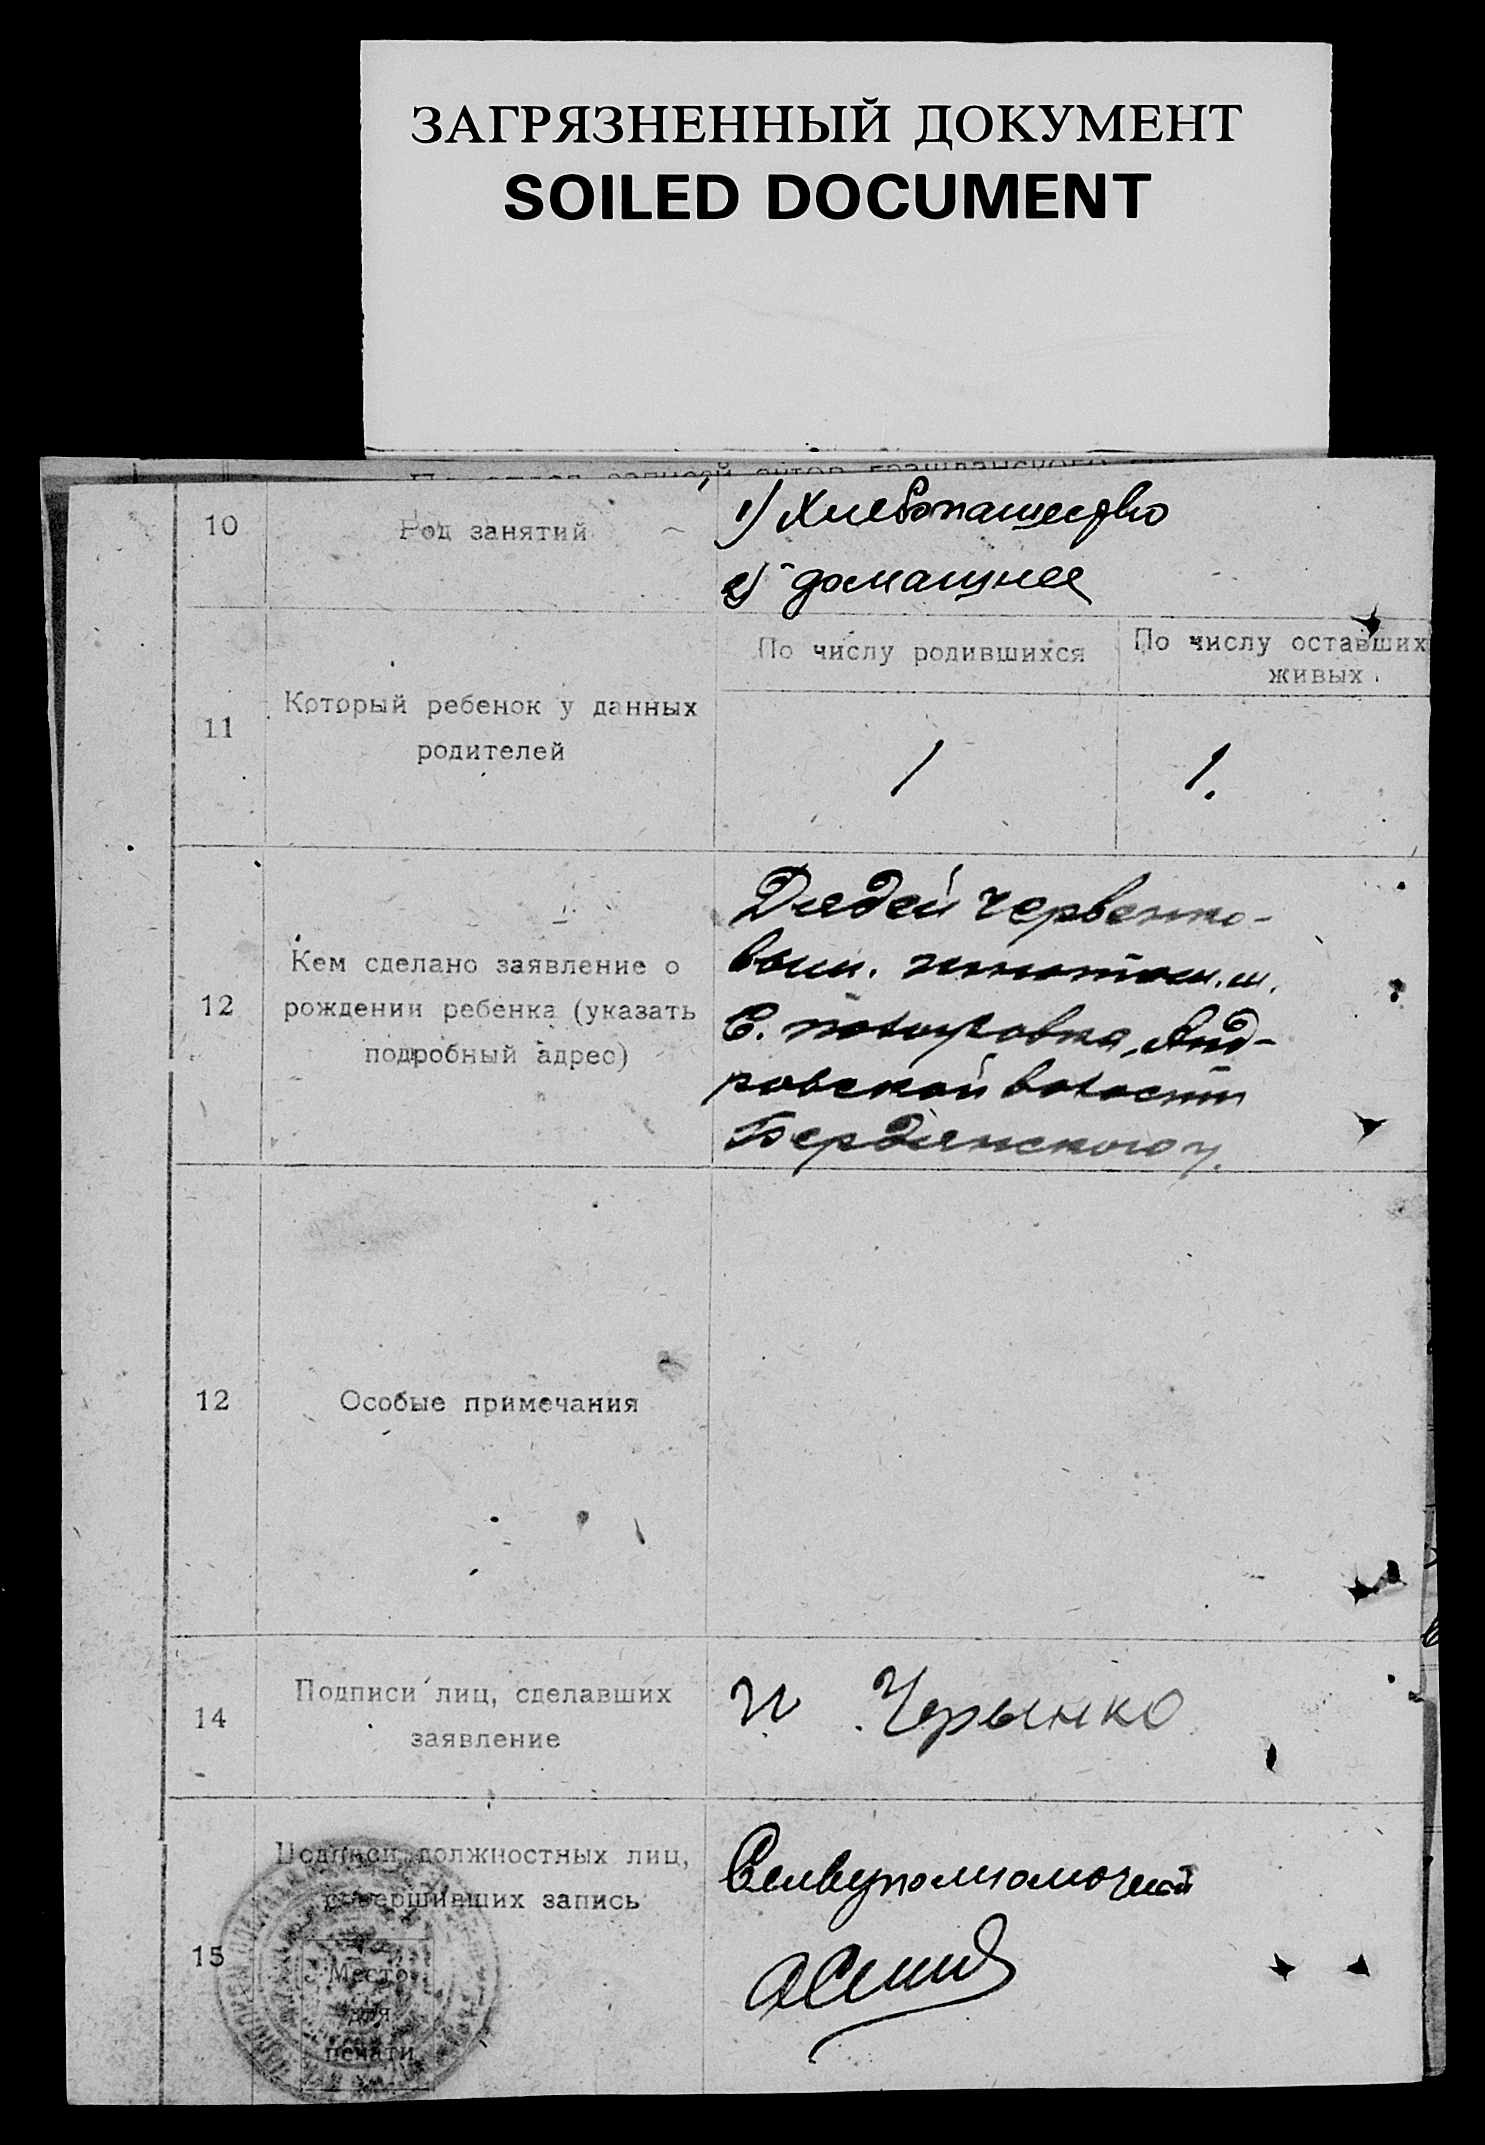 ЗАГРЯЗНЕННЫЙ ДОКУМЕНТ
SOILED DOCUMENT
10
Род занятий
1) Хлебопашество
2) домашнее
11
Который ребенок у данных
родителей
По числу родившихся
По числу оставших
живых
1
1.
12
Кем сделано заявление о
рождении ребенка (указать
подробный адрес)
Дядей Червенко-
вым.
С.
ровской волости
Бердянского у.
12
Особые примечания
14
Подписи лиц, сделавших
заявление
15
Подписи должностных лиц,
совершивших запись
Место
для
печати